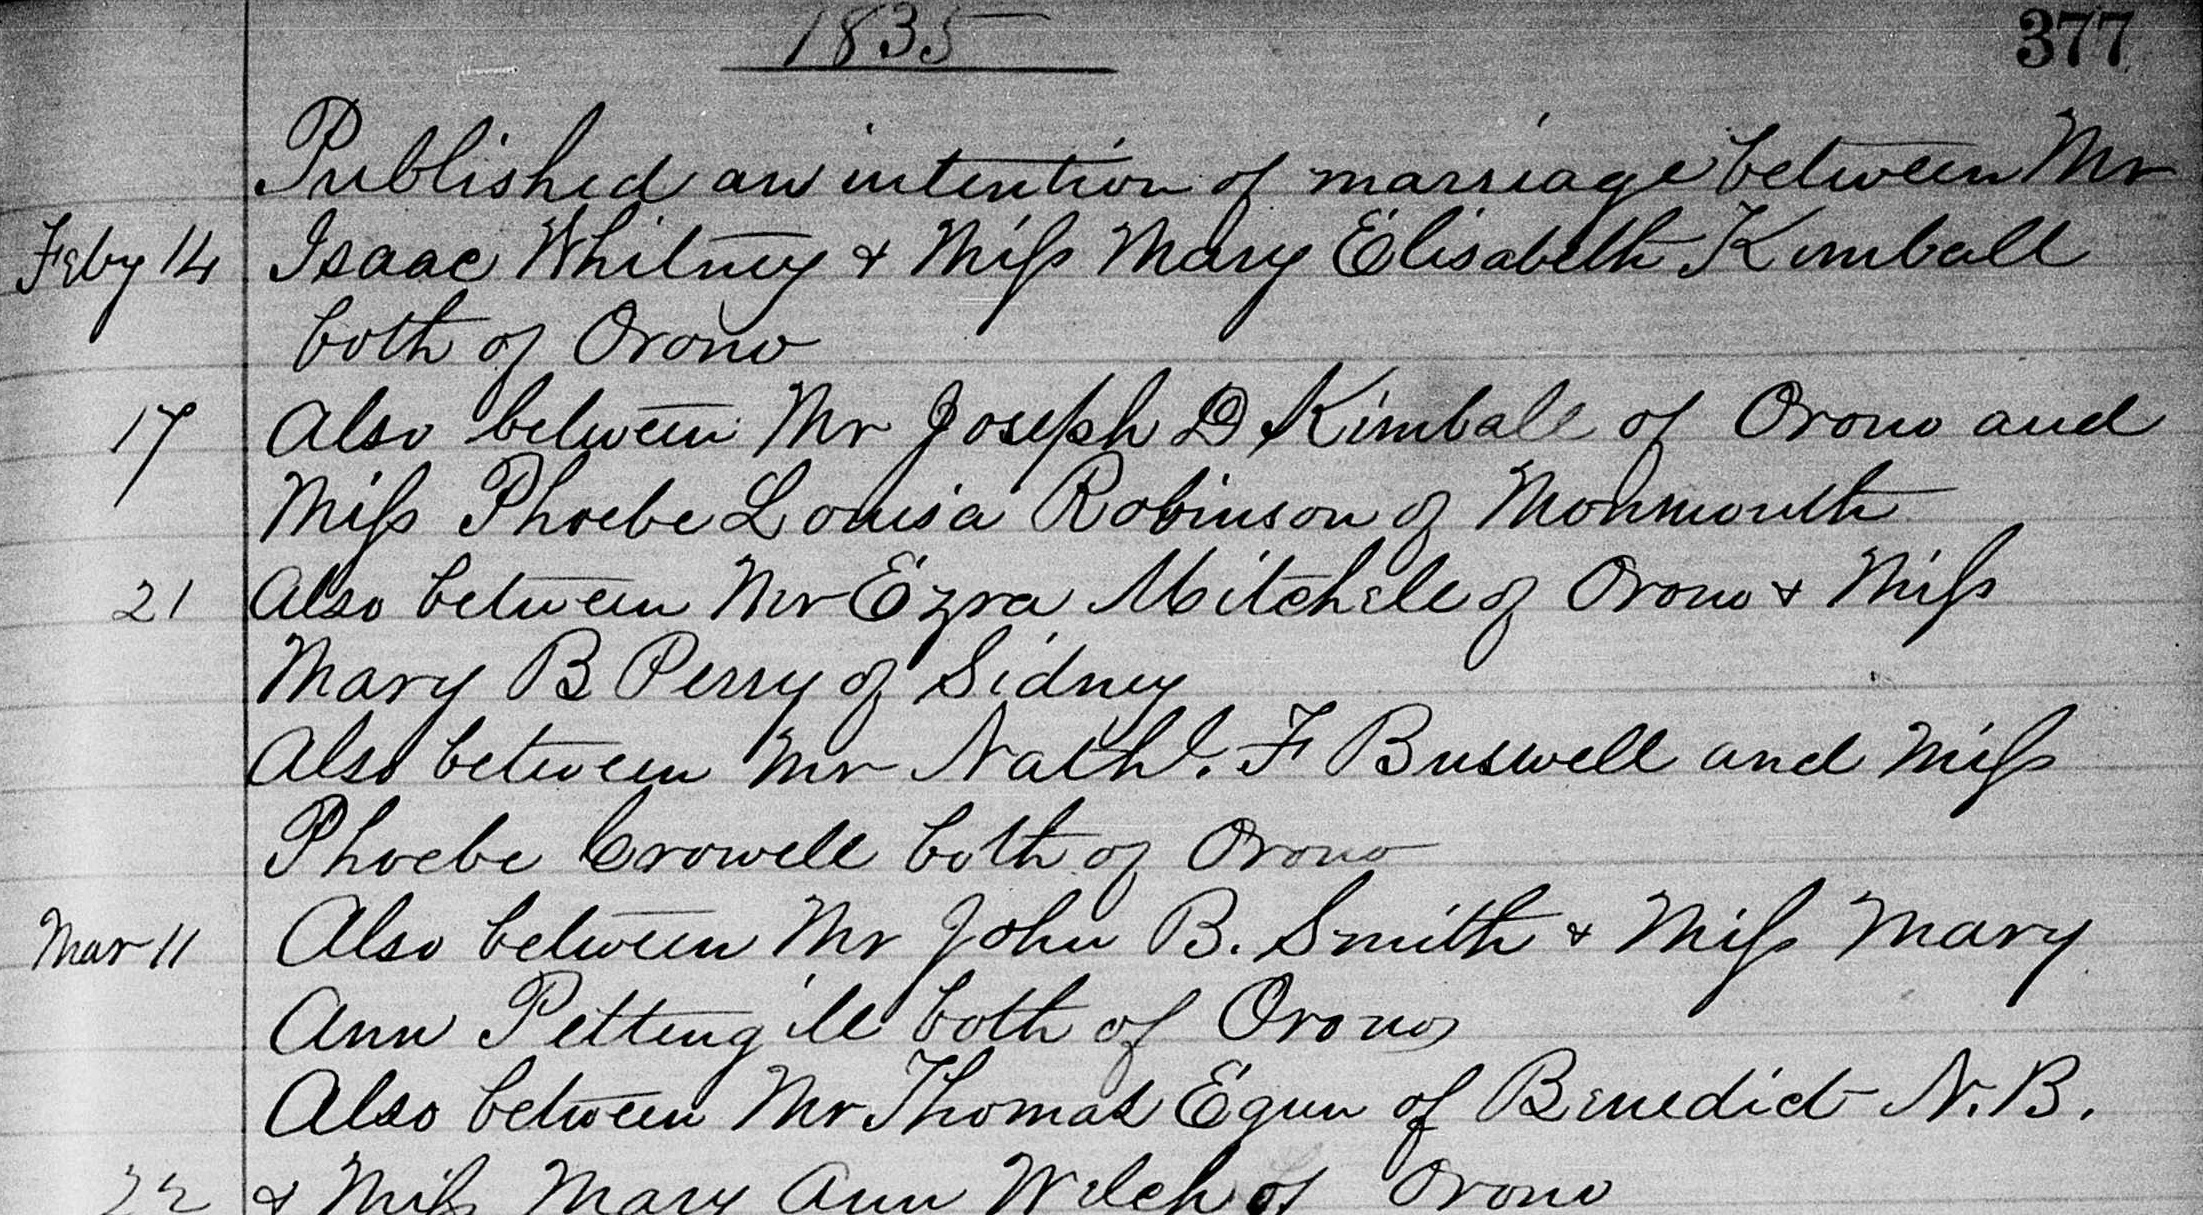 1835 377
Published an intention of marriage between Mr
Feby 14 Isaac Whitney & Miss Mary Elisabeth Kimball
both of Orono
17 Also between Mr Joseph D Kimball of Orono and
Miss Phoebe Louisa Robinson of Monmouth
21 Also between Mr Ezra Mitchell of Orono & Miss
Mary B Perry of Sidney
Also between Mr Nathl. F Buswell and Miss
Phoebe Crowell both of Orono
Mar 11 Also between Mr John B. Smith & Miss Mary
Ann Pettengill both of Orono
Also between Mr Thomas Egun of Benedict N.B.
22 & Miss Mary Ann Welch of Orono